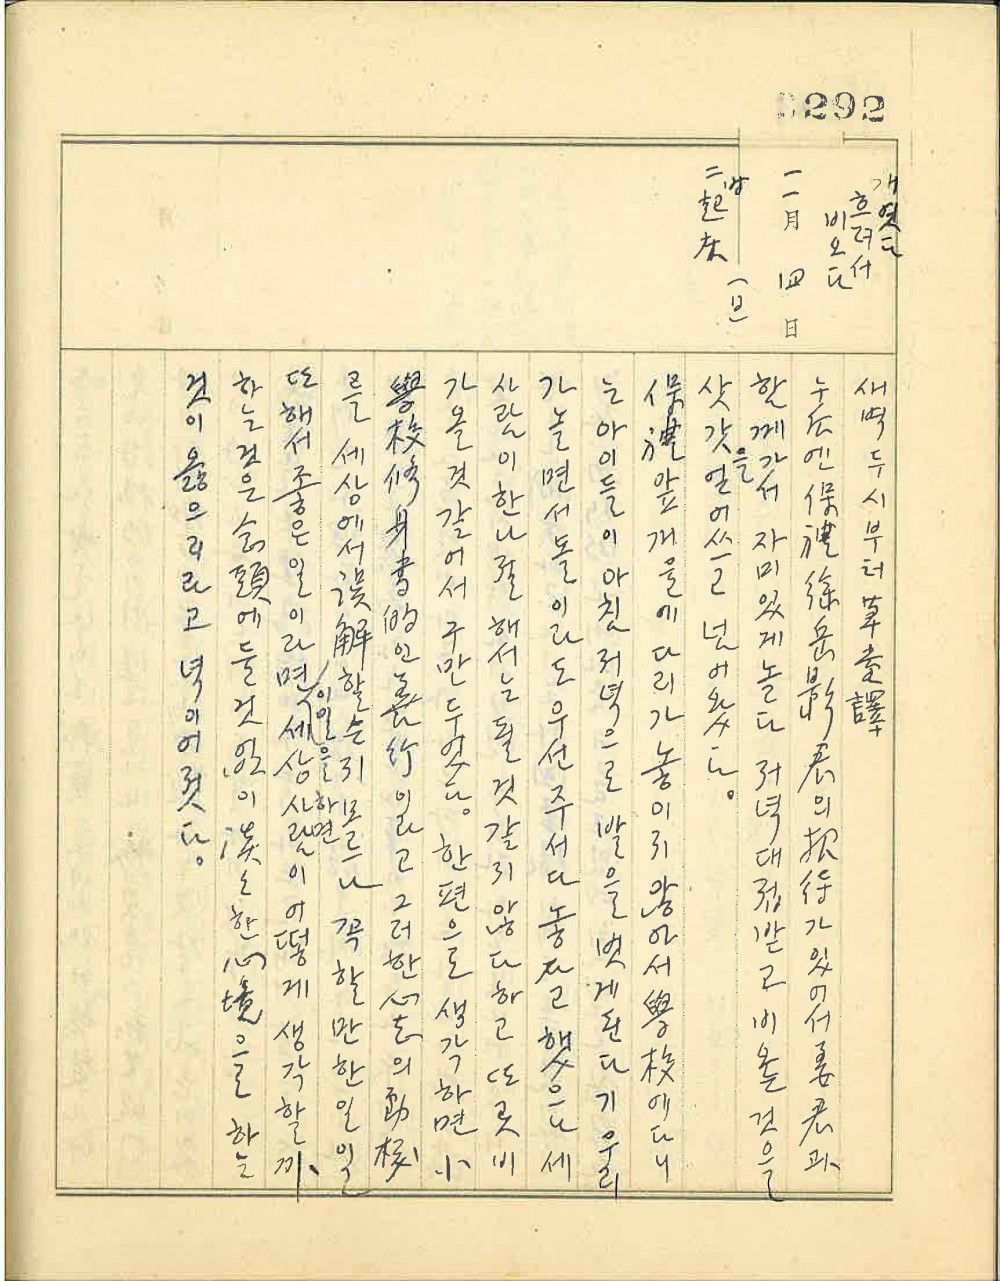 3292
개엿다
흐려서
비오다
一一月 四 日
(日)
二남
起床
새벽 두시부터 草堂譯
누丘엔 保禮 徐岳影 君의 招待가 있어서 姜君과
함께 가서 자미있게 놀다 저녁대접받고 비올 것을
삿갓을 얻어쓰고 넘어왔다。
保禮 앞 개울에 다리가 놓이지 않아서 學校에 다니
는 아이들이 아침 저녁으로 발을 벗게 된다기 우리
가 놀면서 돌이라도 우선 주서다 놓자고 했으나 세
사람이 한나절 해서는 될 것 같지 않다 하고 또 곳 비
가 올 것 같어서 구만두었다。 한편으로 생각하면 小
學校 修身書的인 善行이라고 그러한 心志의 動機
를 세상에서 誤解할른지 모르나 꼭 할만한 일일
또 해서 좋은 일이라면 이일을 하면 세상사람이 어떻게 생각할까、
하는 것은 念頭에 둘 것 없이 淡々한 心境으로 하는
것이 옳으리라고 녁이어젓다。